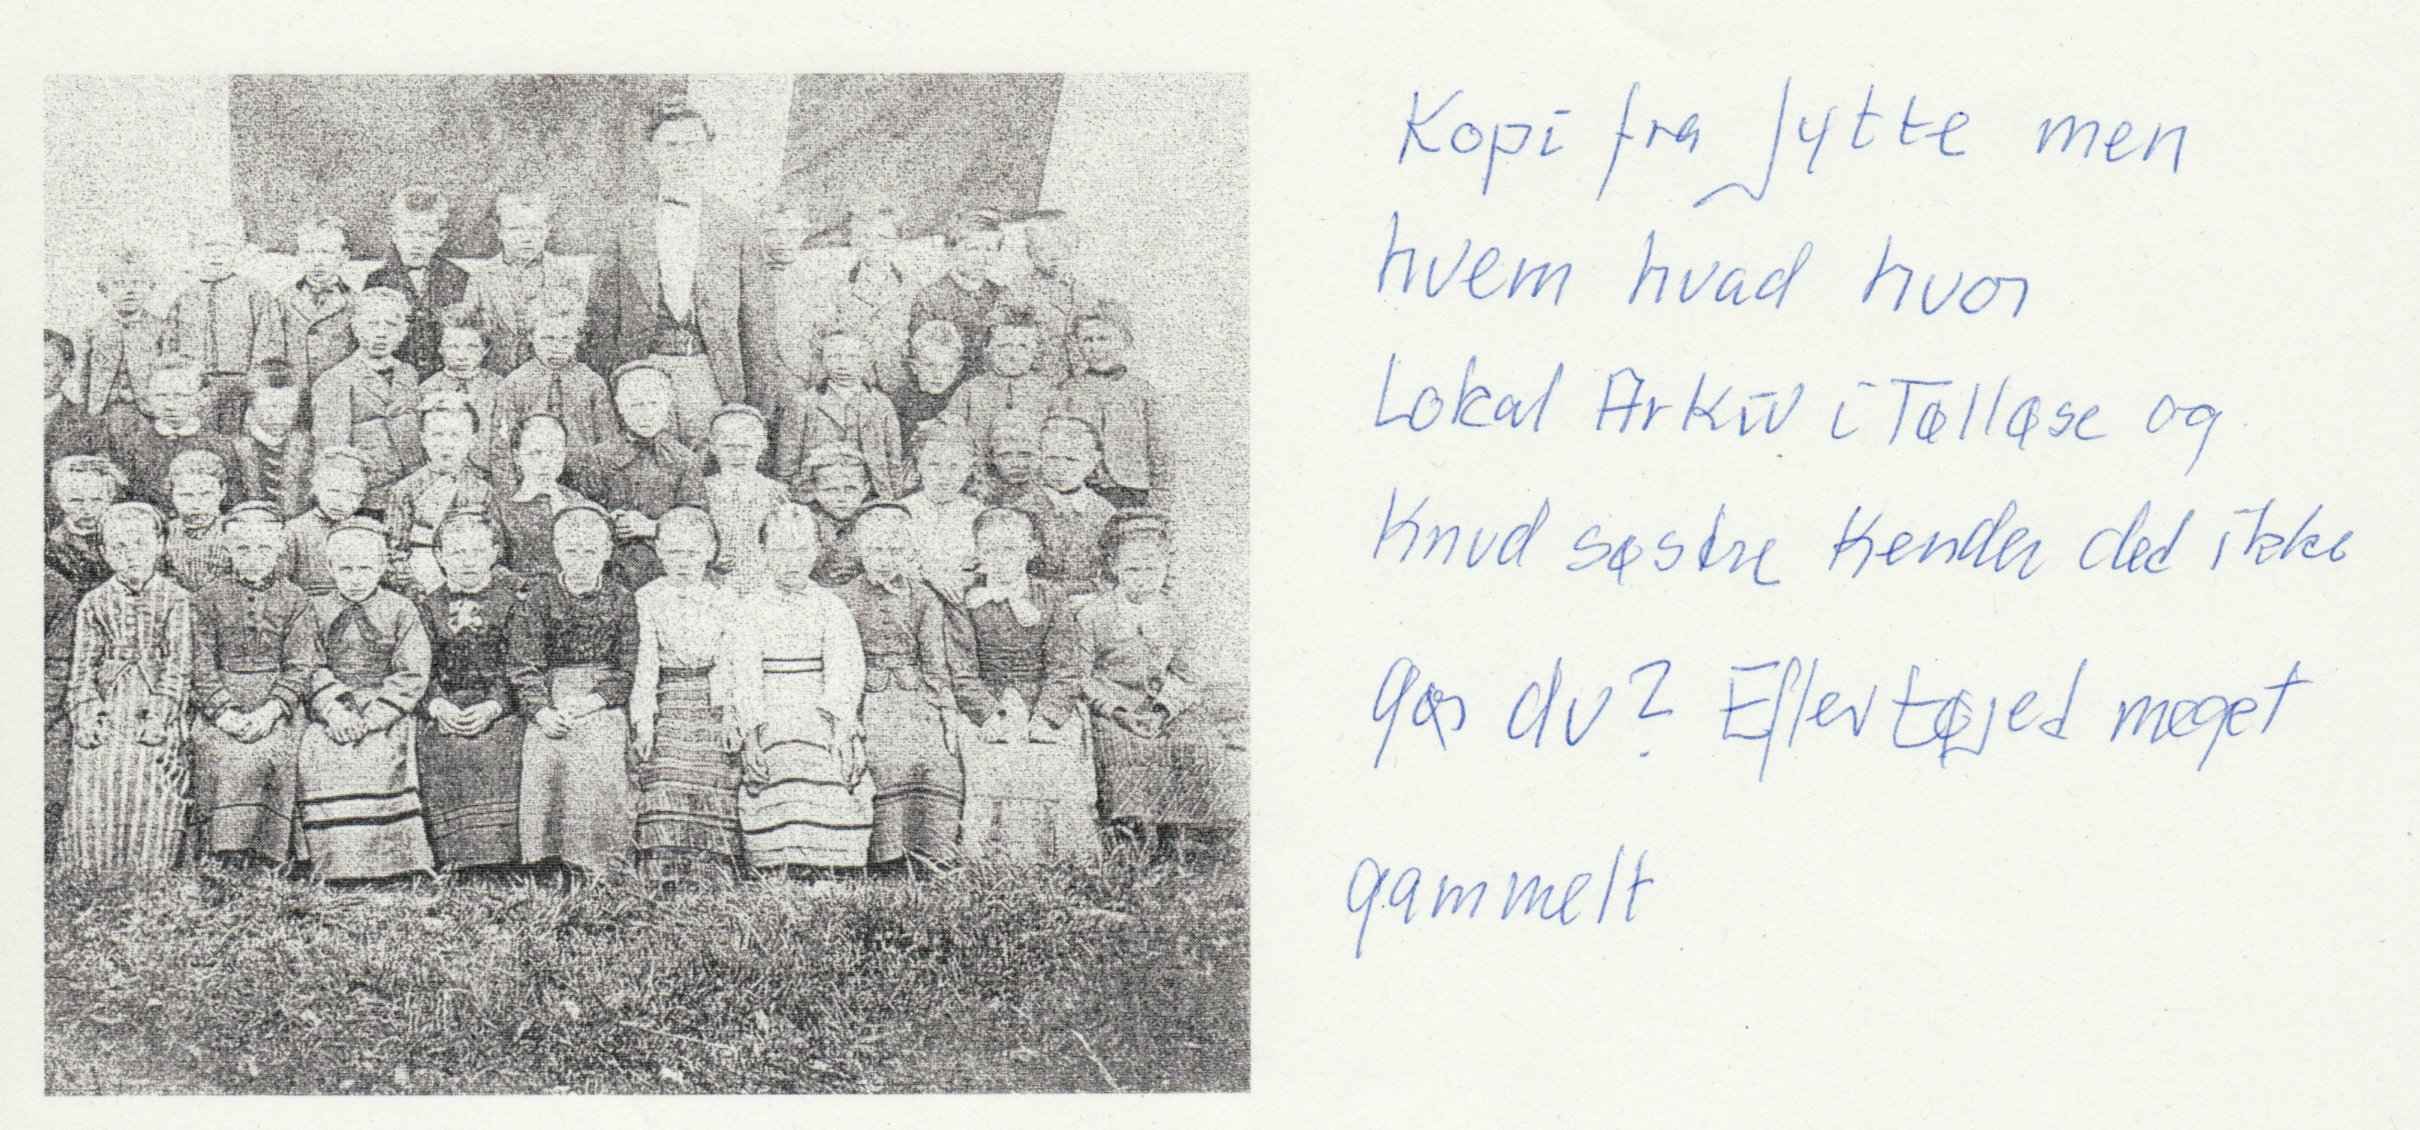 Kopi fra Jytte men
hvem hvad hvor
Lokal Arkiv i Tølløse og
Knud søstre Kender det ikke
gør du? Efter tøjed meget
gammelt